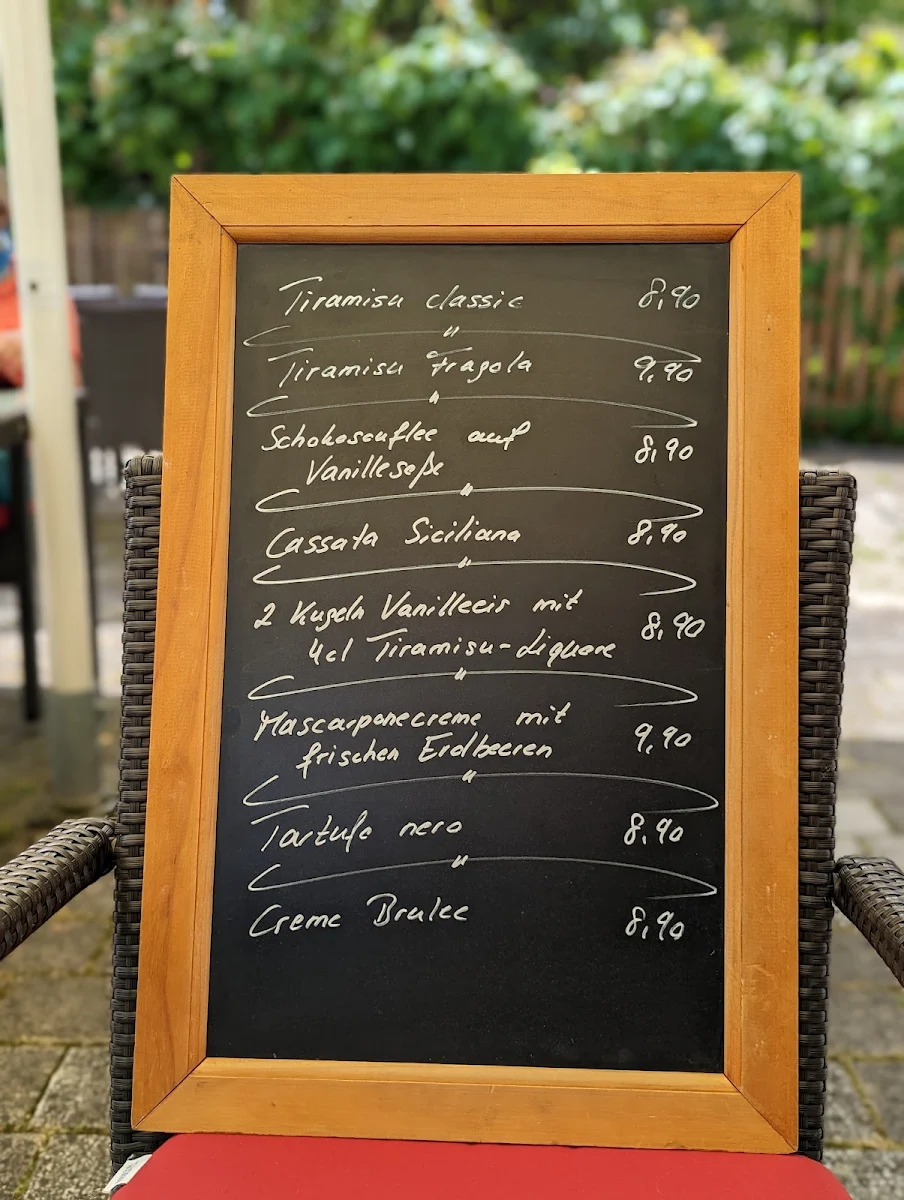 Tiramisu classic 8,90
Tiramisu Fragola 9,90
Schokosouflee auf
Vanillesoße 8,90
Cassata Siciliana 8,90
2 Kugeln Vanilleeis mit
4cl Tiramisu-Liquore 8,90
Mascarponecreme mit
frischen Erdbeeren 9,90
Tartufo nero 8,90
Creme Brulee 8,90